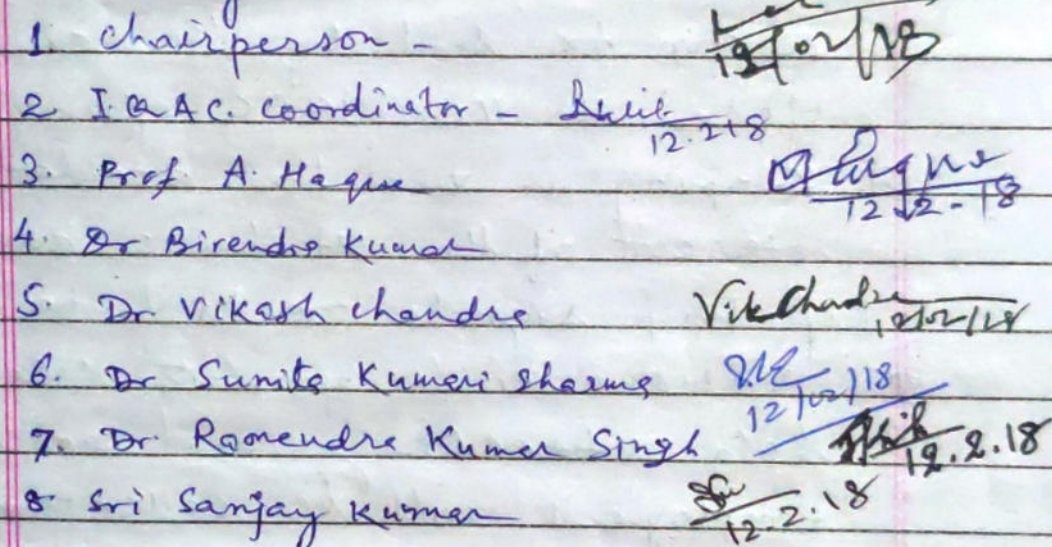 1. Chairperson - 12/02/18
2 I.Q.A.C. coordinator - 12.2.18
3. Prof A. Haque 12-2-18
4. Dr Birendra Kumar
5. Dr. Vikash Chandra Vik Chandra 12/02/18
6. Dr Sunita Kumari Sharma 12/02/18
7. Dr. Ramendra Kumar Singh 12.2.18
8 Sri Sanjay Kumar 12.2.18